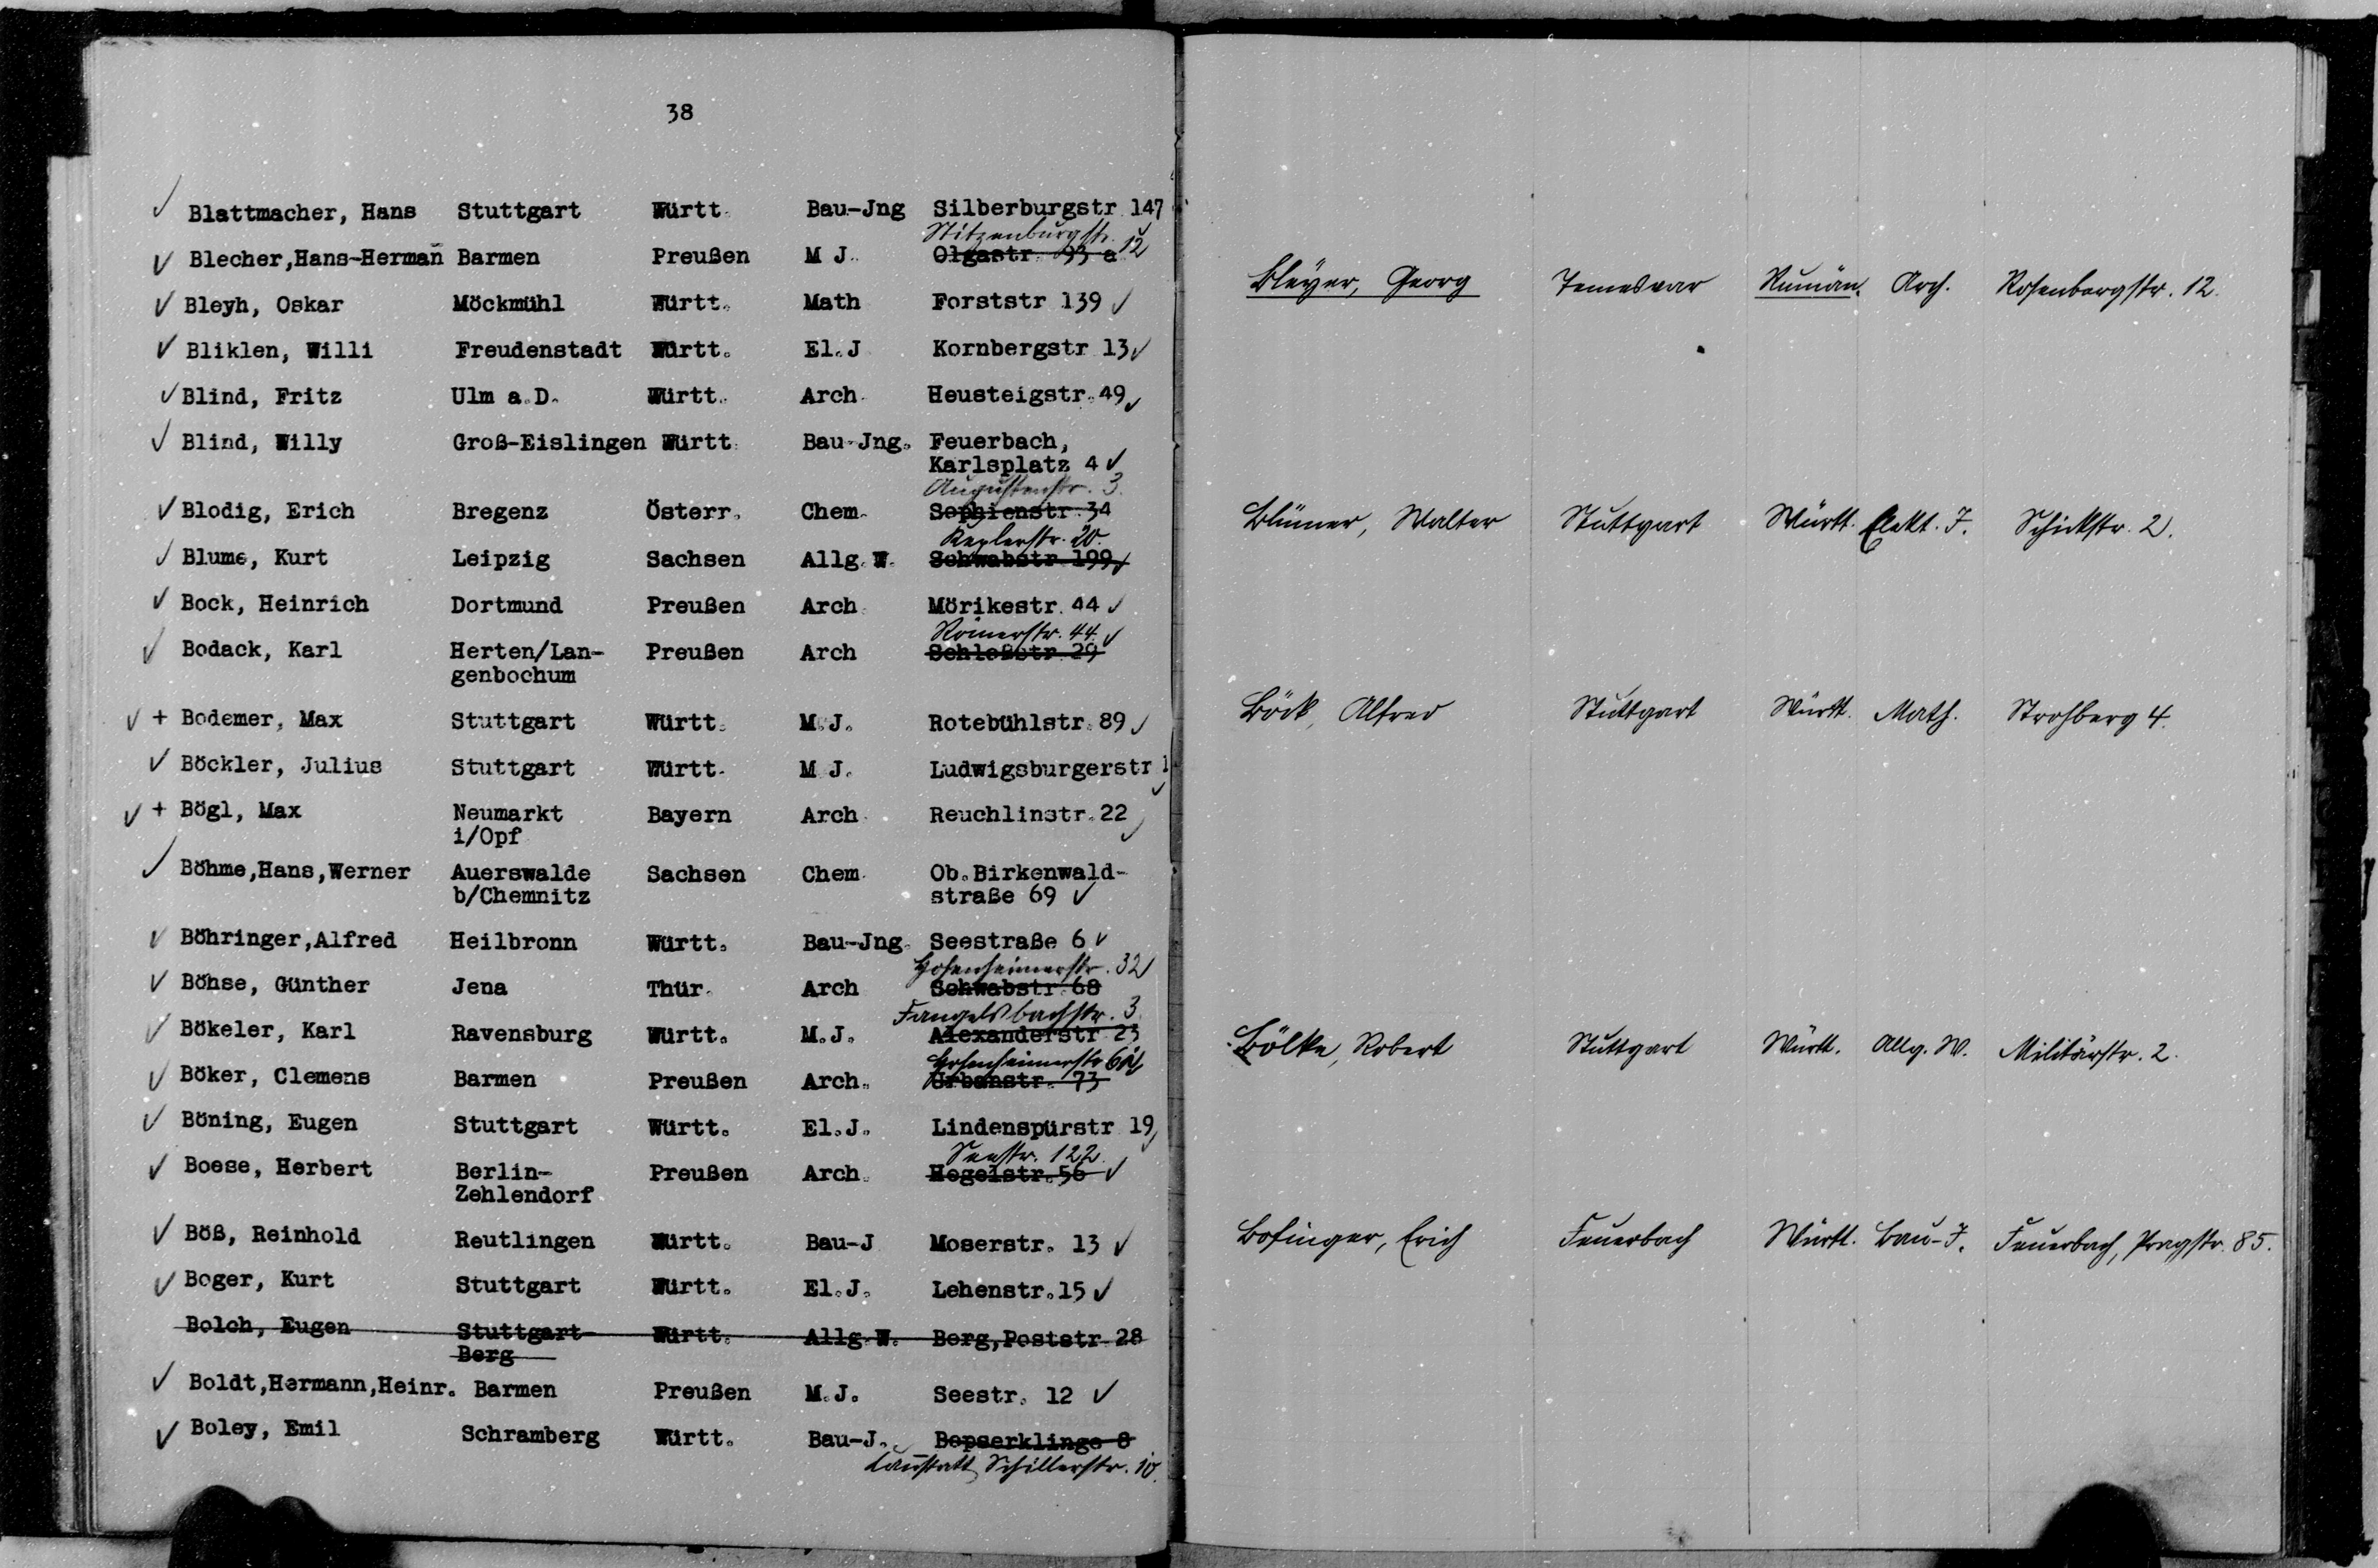 38
Blattmacher, Hans Stuttgart Württ. Bau-Jng Silberburgstr 147
Stitzenburgstr. 12
Blecher,Hans-Herman̅ Barmen Preußen M J. Olgastr. 93 a
Bleyh, Oskar Möckmühl Württ. Math Forststr 139
Bliklen, Willi Freudenstadt Württ. El.J Kornbergstr 13
Blind, Fritz Ulm a.D. Württ. Arch. Heusteigstr.49
Blind, Willy Groß-Eislingen Württ. Bau-Jng. Feuerbach,
Karlsplatz 4
Augustenstr. 3.
Blodig, Erich Bregenz Österr. Chem. Sophienstr.34
Keplerstr. 20.
Blume, Kurt Leipzig Sachsen Allg.W. Schwabstr 199
Bock, Heinrich Dortmund Preußen Arch. Mörikestr.44
Römerstr. 44.
Bodack, Karl Herten/Lan- Preußen Arch Schloßstr 29
genbochum
+ Bodemer, Max Stuttgart Württ. M.J. Rotebühlstr.89
Böckler, Julius Stuttgart Württ. M J. Ludwigsburgerstr 1
+ Bögl, Max Neumarkt Bayern Arch. Reuchlinstr.22
i/Opf
Böhme,Hans,Werner Auerswalde Sachsen Chem. Ob.Birkenwald-
b/Chemnitz straße 69
Böhringer,Alfred Heilbronn Württ. Bau-Jng. Seestraße 6
Hohenheimerstr. 32
Böhse, Günther Jena Thür. Arch Schwabstr.68
Fangelsbachstr. 3.
Bökeler, Karl Ravensburg Württ. M.J. Alexanderstr 23
Hohenheimerstr
Böker, Clemens Barmen Preußen Arch. Urbanstr. 73
Böning, Eugen Stuttgart Württ. El.J. Lindenspürstr 19
Seestr. 122.
Boese, Herbert Berlin- Preußen Arch. Hegelstr.56
Zehlendorf
Böß, Reinhold Reutlingen Württ. Bau-J Moserstr. 13
Boger, Kurt Stuttgart Württ. El.J. Lehenstr.15
Bolch, Eugen Stuttgart- Württ. Allg.W. Berg,Poststr.28
Berg
Boldt,Hermann,Heinr. Barmen Preußen M.J. Seestr. 12
Boley, Emil Schramberg Württ. Bau-J. Bopserklinge 8
Cannstatt, Schillerstr. 10.
Bleyer, Georg Temesvar Rumän. Arch. Rosenbergstr. 12.
Blümer, Walter Stuttgart Württ. Elekt. J. Schickstr. 2.
Böck, Alfred Stuttgart Württ. Math. Strohberg 4.
Bölke, Robert Stuttgart Württ. Allg. W. Militärstr. 2.
Bofinger, Erich Feuerbach Württ. Bau-J. Feuerbach, Pragstr. 85.